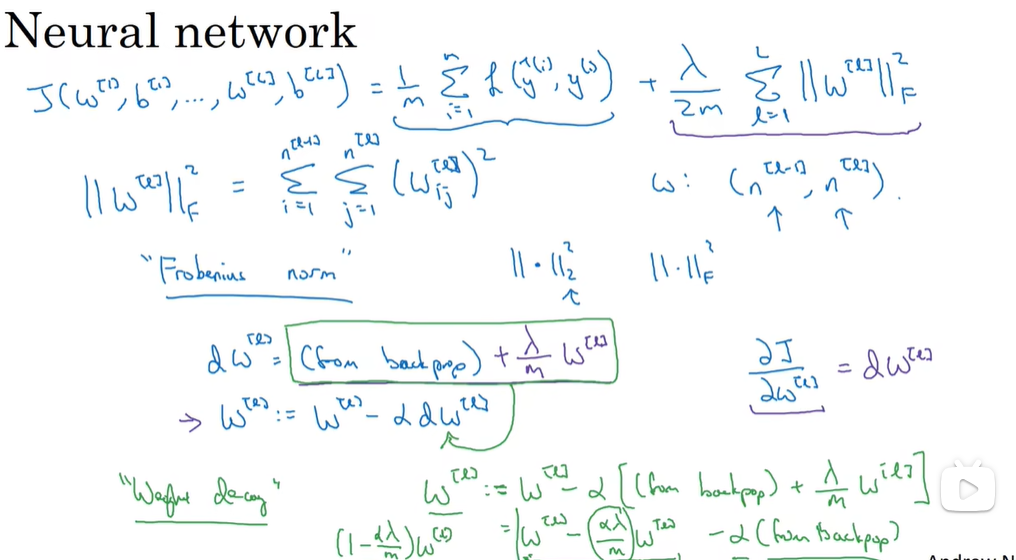 Neural network
J(w^[1], b^[1], ..., w^[L], b^[L]) = 1/m Σ_{i=1}^{m} L(ŷ^(i), y^(i)) + λ/2m Σ_{l=1}^{L} ||w^[l]||_F^2
||w^[l]||_F^2 = Σ_{i=1}^{n^[l-1]} Σ_{j=1}^{n^[l]} (w_ij^[l])^2    w: (n^[l-1], n^[l]).
↑ ↑
"Frobenius norm"    ||·||_2^2    ||·||_F^2
↑
dw^[l] = (from backprop) + λ/m w^[l]    ∂J/∂w^[l] = dw^[l]
→ w^[l] := w^[l] - α dw^[l]
"Weight decay"    w^[l] := w^[l] - α [(from backpop) + λ/m w^[l]]
(1 - αλ/m) w^[l]    = w^[l] - αλ/m w^[l] - α (from backpop)